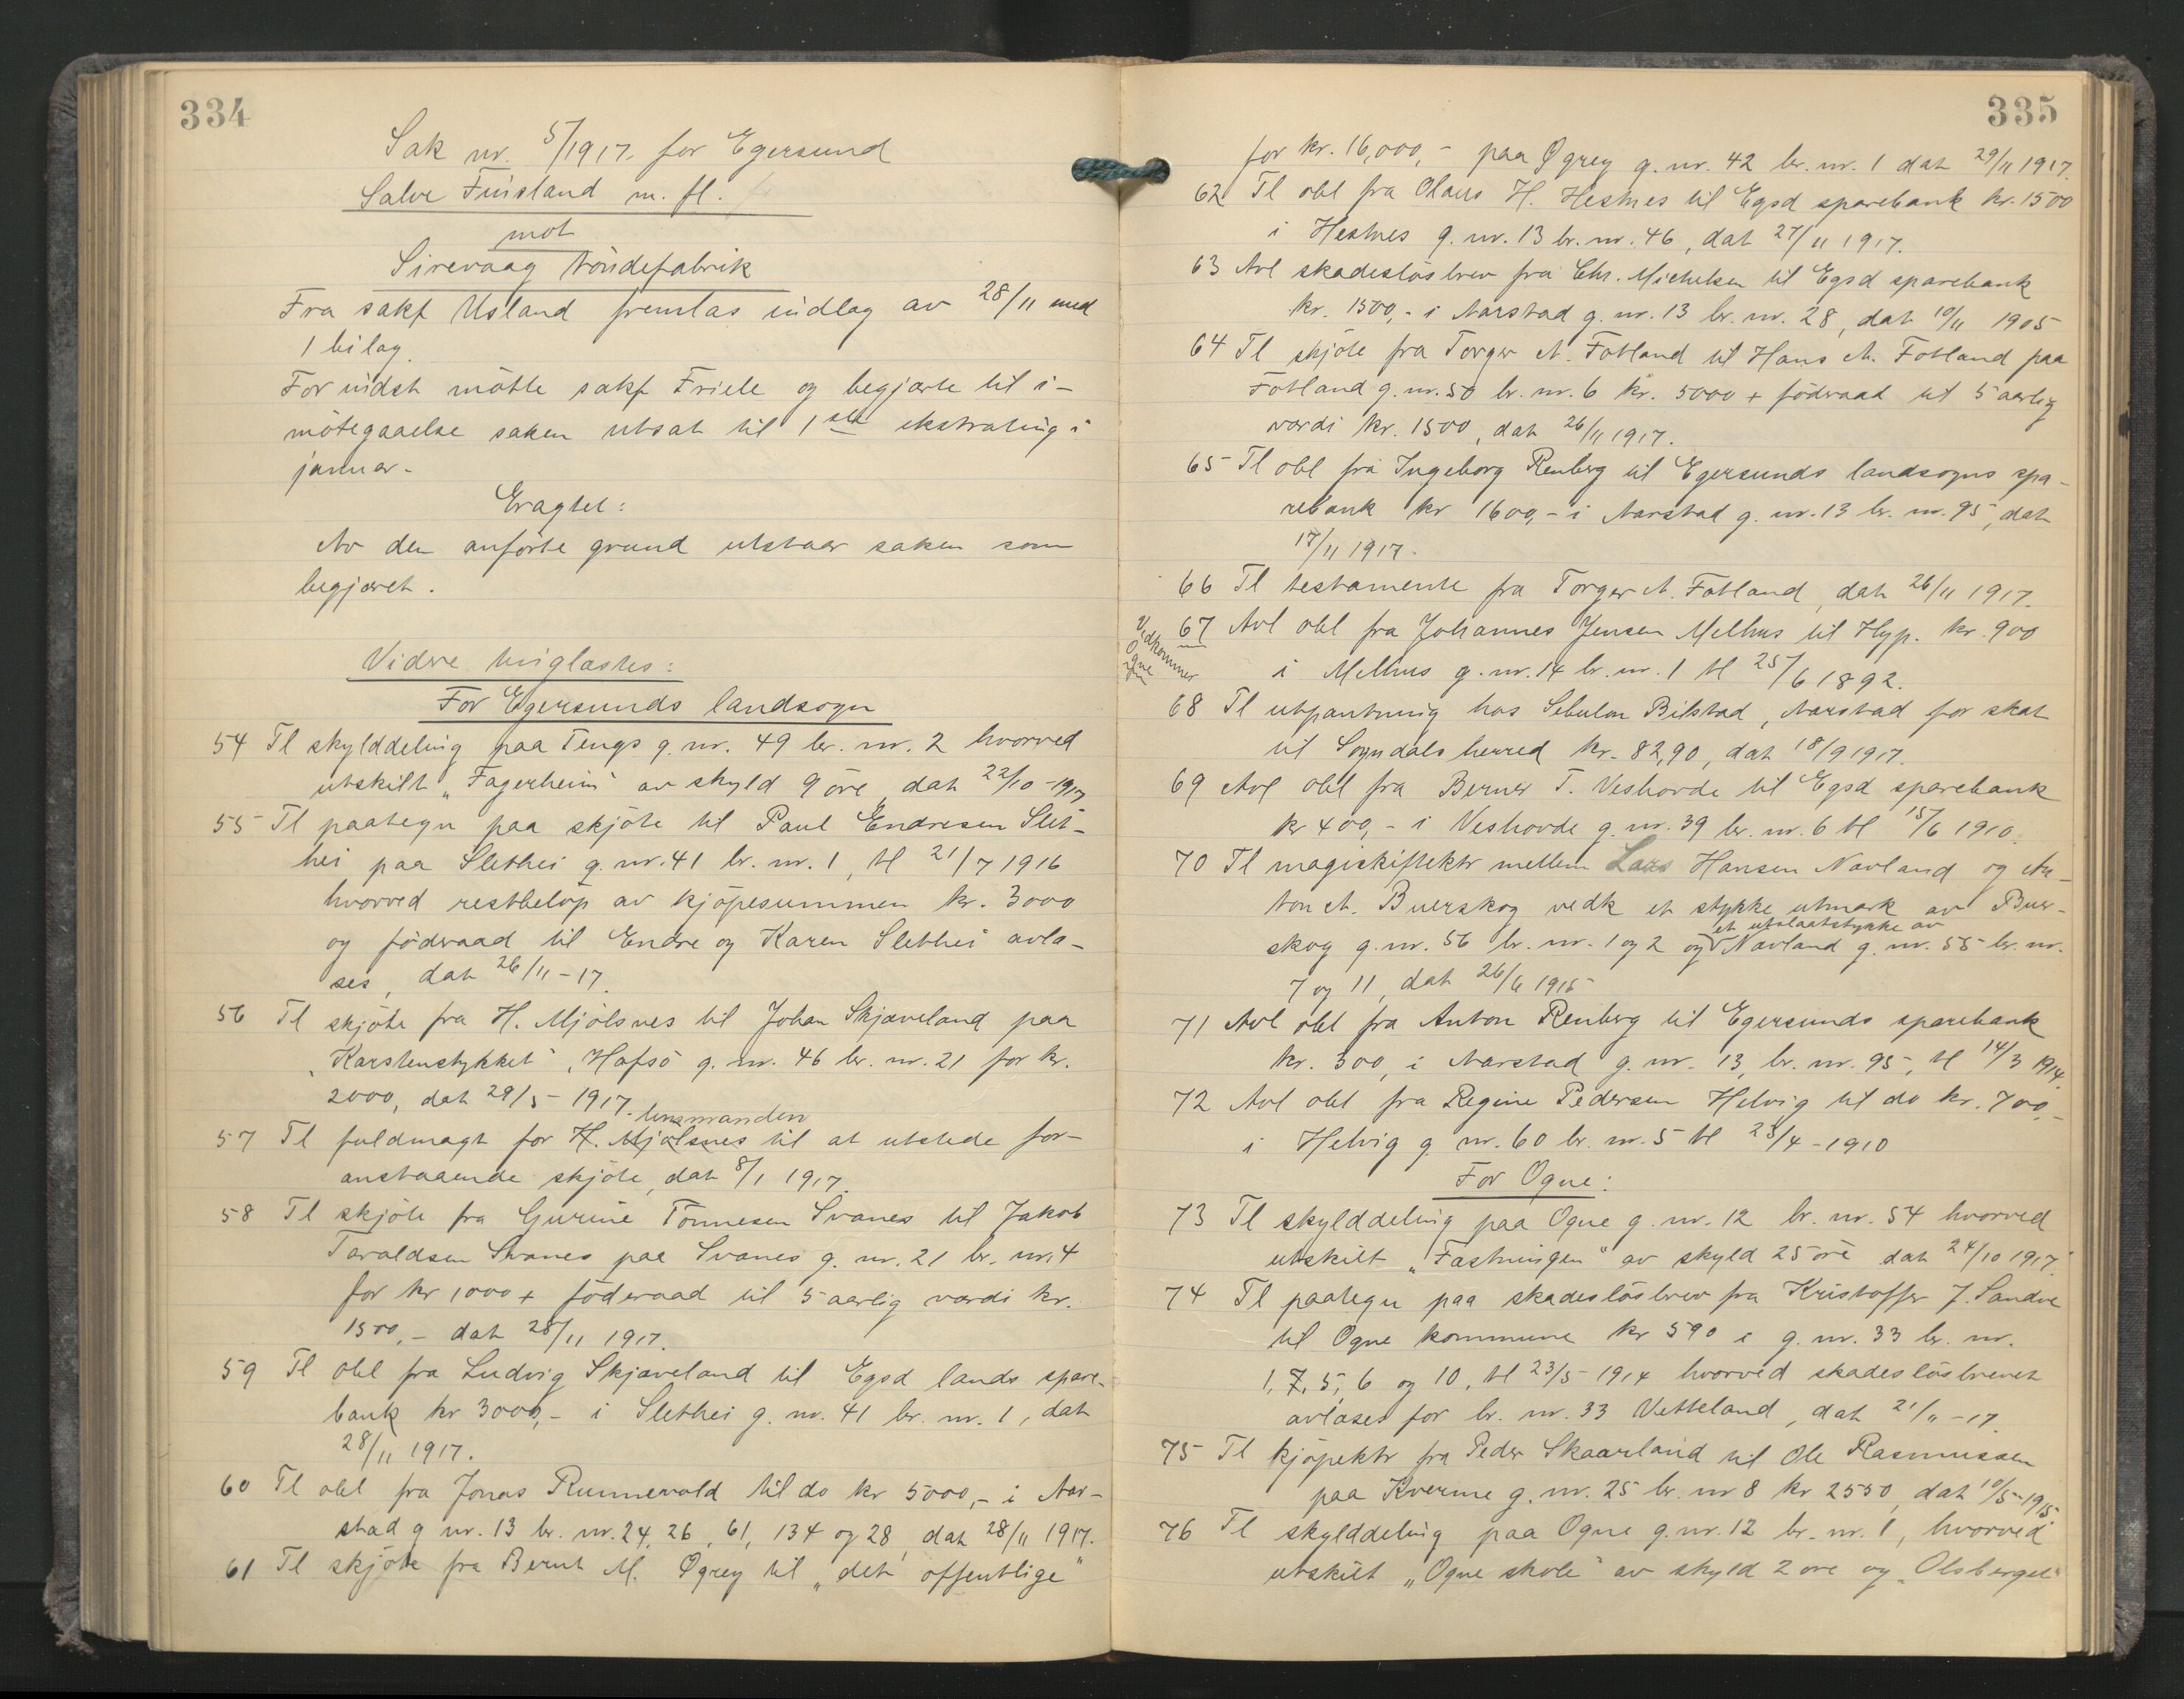 334
Sak nr. 5/1917. for Egersund
Salve Fuisland m. fl.
mot
Sirevaag töndefabrik
Fra sakf Usland fremlas indlag av 28/11 med
1 bilag.
For indst mötte sakf Friele og begjærte til i-
mötegaaelse saken utsat til 1ste ekstrating i
januar.
Eragtet:
Av den anförte grund utstaar saken som
begjæret.
Videre tinglæstes:
For Egersunds landsogn
54 Tl skylddeling paa Tengs g. nr. 49 br. nr. 2 hvorved
utskilt „Fagerheim" av skyld 9 öre, dat 22/10-1917
55 Tl paategn paa skjöte til Paul Endresen Slet-
hei paa Slethei g. nr. 41 br. nr. 1, tl 21/7 1916
hvorved restbelöp av kjöpesummen kr. 3000
og föderaad til Endre og Karen Slethei avlæ-
ses, dat 26/11-17.
56 Tl skjöte fra H. Mjölsnes til Johan Skjæveland paa
„Karstenstykket", Hafsö g. nr. 46 br. nr. 21 for kr.
2000, dat 29/5-1917.
lensmanden
57 Tl fuldmagt for H. Mjölsnes til at utstede for-
anstaaende skjöte, dat 8/1 1917.
58 Tl skjöte fra Gurine Tönnesen Svanes til Jakob
Taraldsen Svanes paa Svanes g. nr. 21 br. nr. 4
for kr 1000 + föderaad til 5 aarlig værdi kr.
1500,- dat 28/11 1917.
59 Tl obl fra Ludvig Skjæveland til Egsd lands spare-
bank kr 3000,- i Slethei g. nr. 41 br. nr. 1, dat
28/11 1917.
60 Tl obl fra Jonas Runnevold til do kr 5000,- i Aar-
stad g nr. 13 br. nr. 24, 26, 61, 134 og 28, dat 28/11 1917.
61 Tl skjöte fra Bernt M. Øgrey til „det offentlige"
335
for kr. 16,000,- paa Øgrey g. nr. 42 br. nr. 1 dat 29/11 1917.
62 Tl obl fra Olaus H. Hestnes til Egsd sparebank kr. 1500
i Hestnes g. nr. 13 br. nr. 46, dat 27/11 1917.
63 Avl skadeslösbrev fra Chr. Michelsen til Egsd sparebank
kr. 1500,- i Aarstad g. nr. 13 br. nr. 28, dat 10/11 1905
64 Tl skjöte fra Torger A. Fotland til Hans A. Fotland paa
Fotland g. nr. 50 br. nr. 6 kr. 5000 + föderaad til 5 aarlig
værdi kr. 1500, dat 26/11 1917.
65 Tl obl fra Ingeborg Renberg til Egersunds landsogns spa-
rebank kr 1600,- i Aarstad g. nr. 13 br. nr. 95, dat
17/11 1917.
66 Tl testamente fra Torger A. Fotland, dat 26/11 1917.
Vedkommer
Ogne
67 Avl obl fra Johannes Jensen Melhus til Hyp. kr. 900
i Melhus g. nr. 14 br. nr. 1 tl 25/6 1892.
68 Tl utpantning hos Sebulon Bilstad, Aarstad for skat
til Sogndals herred kr. 82,90, dat 18/9 1917.
69 Avl obl fra Berner T. Veshovde til Egsd sparebank
kr 400,- i Veshovde g. nr. 39 br. nr. 6 tl 15/6 1910.
70 Tl magiskiftektr mellem Lars Hansen Navland og An-
ton A. Buerskog vedk et stykke utmark av Buer-
et utslaatstykke av
skog g. nr. 56 br. nr. 1 og 2 og Navland g. nr. 55 br. nr.
7 og 11, dat 26/6 1915
71 Avl obl fra Anton Renberg til Egersunds sparebank
kr. 300, i Aarstad g. nr. 13, br. nr. 95, tl 14/3 1914.
72 Avl obl fra Regine Pedersen Helvig til do kr. 700,-
i Helvig g nr. 60 br. nr. 5 tl 23/4-1910
For Ogne:
73 Tl skylddeling paa Ogne g. nr. 12 br. nr. 54 hvorved
utskilt „Fæstningen" av skyld 25 öre dat 24/10 1917.
74 Tl paategn paa skadeslösbrev fra Kristoffer J. Sandve
til Ogne kommune kr 590 i g. nr. 33 br. nr.
1, 7, 5, 6 og 10, tl 23/5-1914 hvorved skadeslösbrevet
avlæses for br. nr. 33 Vetteland, dat 21/11-17.
75 Tl kjöpektr fra Peder Skaarland til Ole Rasmussen
paa Kverme g. nr. 25 br. nr 8 kr 2550, dat 10/5-1915.
76 Tl skylddeling paa Ogne g. nr. 12 br. nr. 1, hvorved
utskilt „Ogne skole" av skyld 2 öre og „Olsberget"